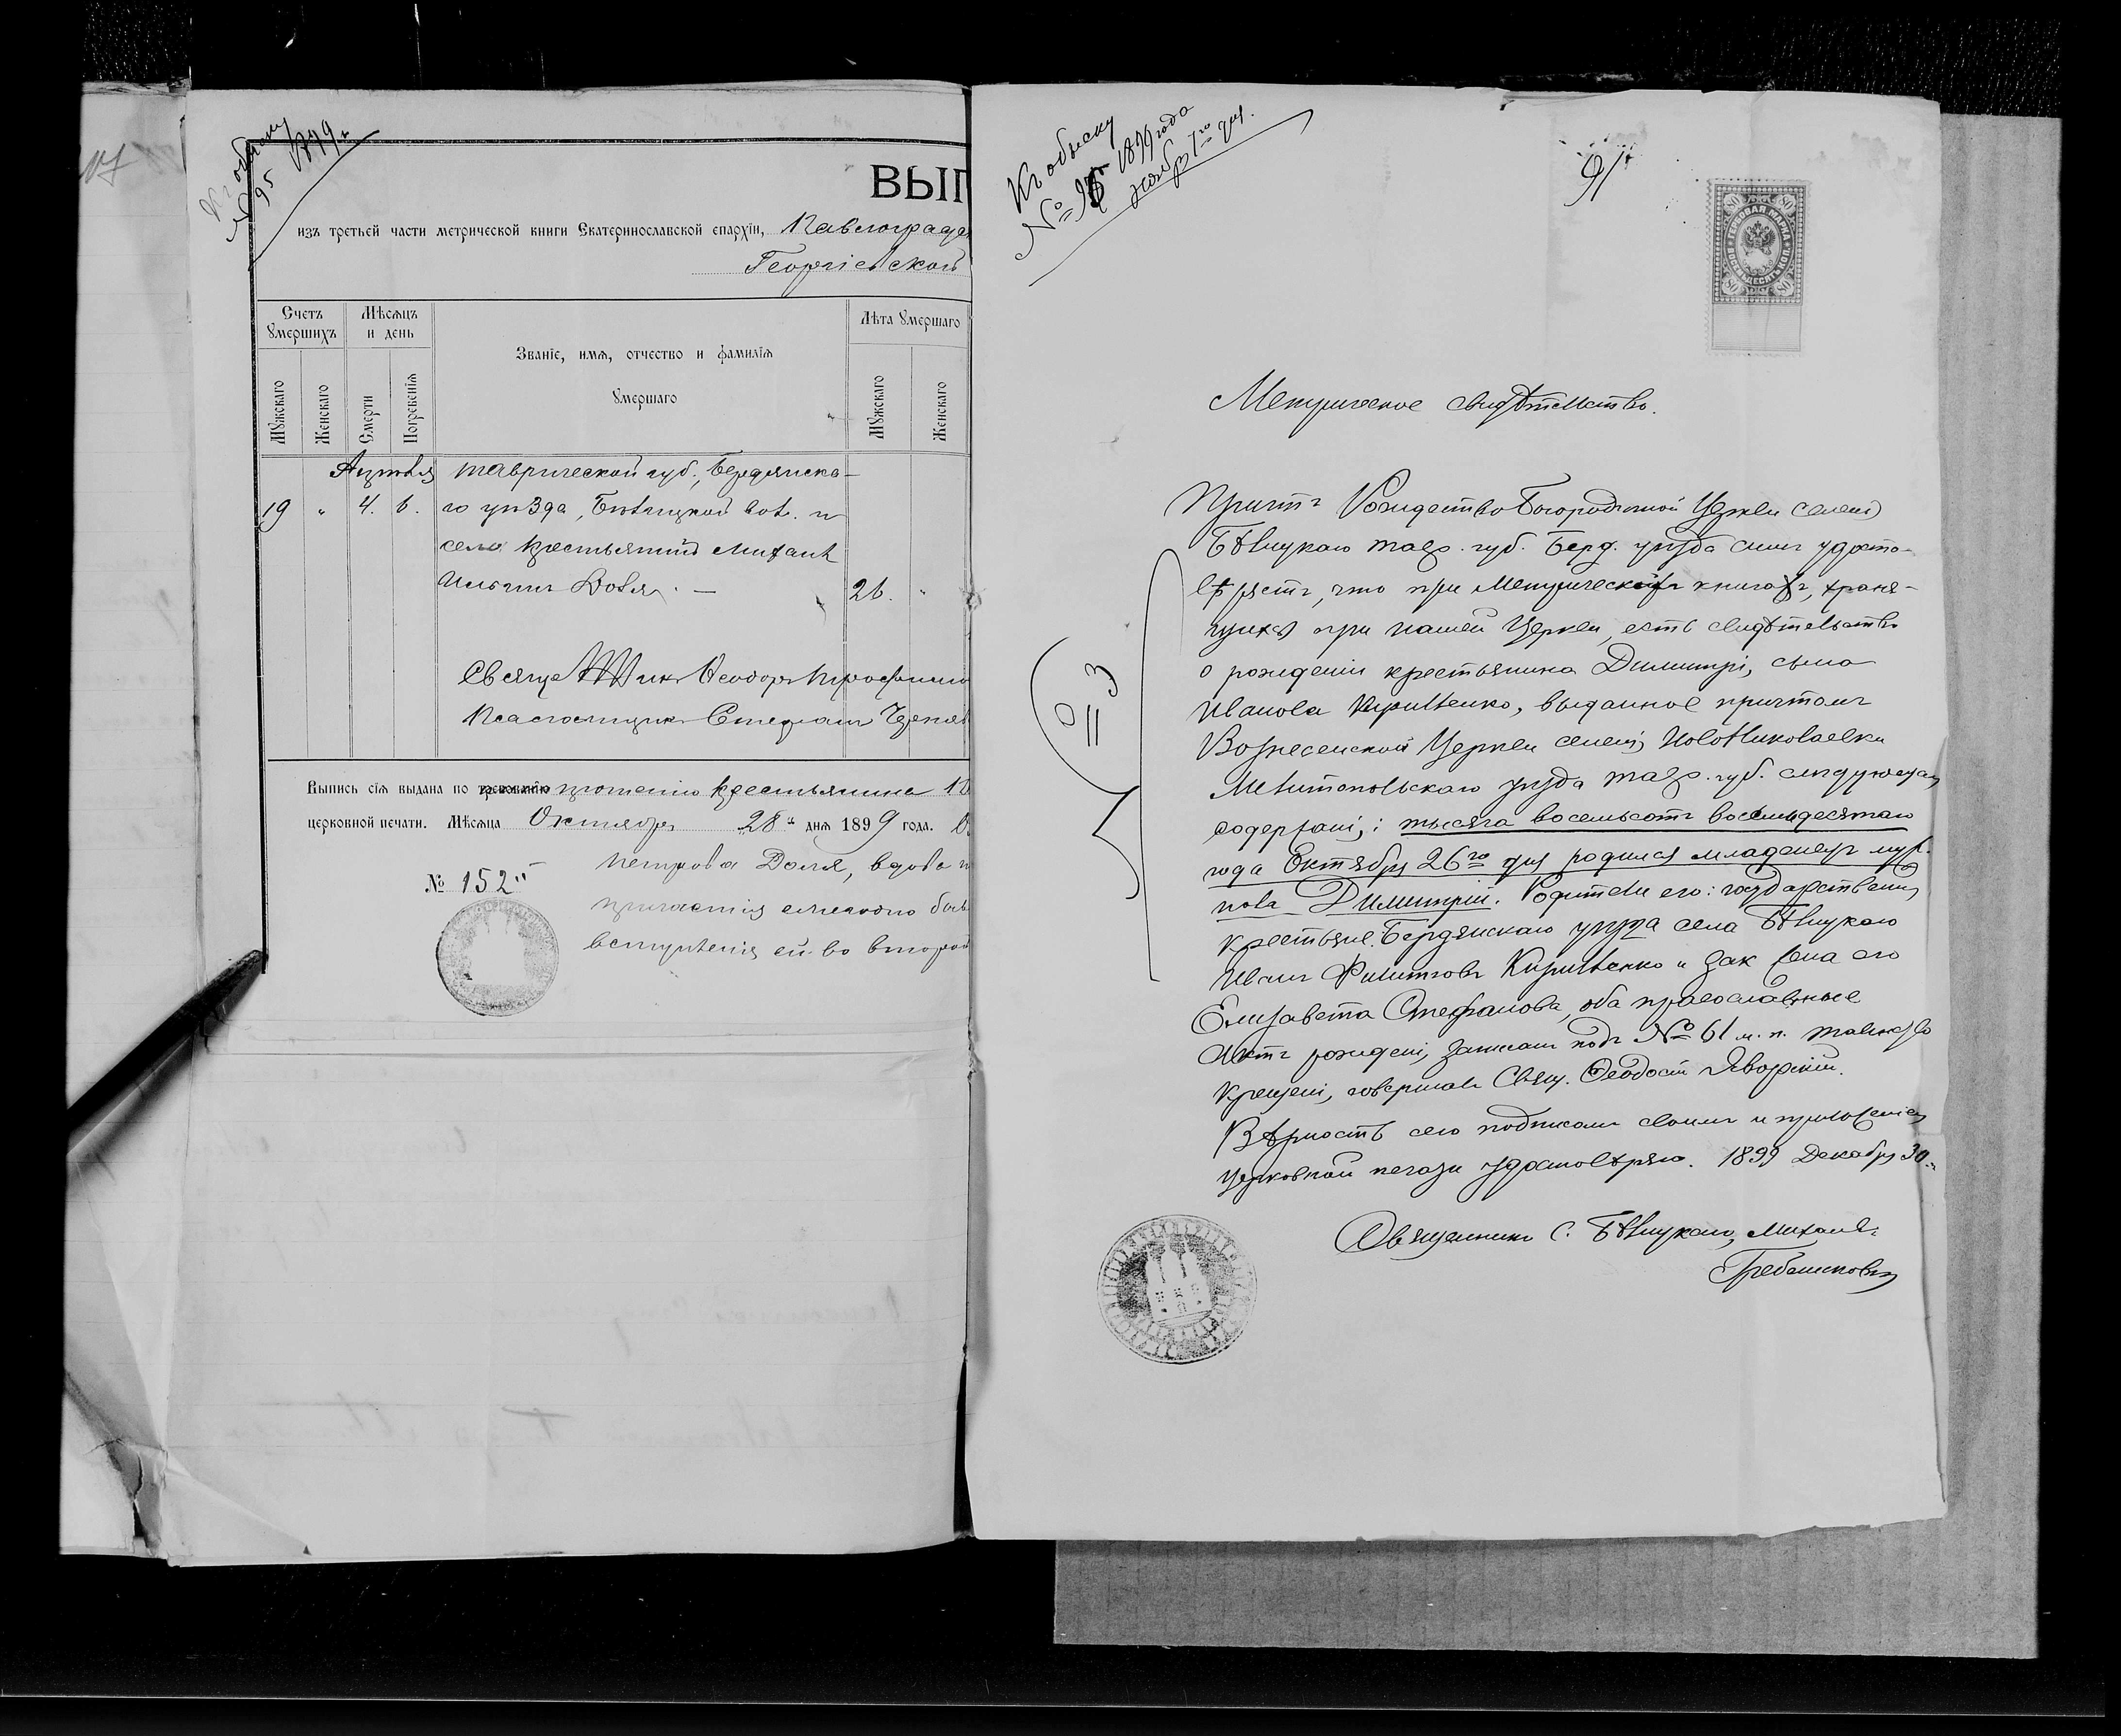 Къ обыску
№ 95 1899 г.
ВЫП
изъ третьей части метрической книги Екатеринославской епархіи, Павлоградс
Георгіевской
Счетъ умершихъ
Мѣсяцъ и день
Званіе, имя, отчество и фамилія умершаго
Лѣта умершаго
Мужскаго
Женскаго
Смерти
Погребенія
Мужскаго
Женскаго
Апрѣля Таврической губ., Бердянска-
19 " 4. 6. го уѣзда, Бѣлицкой вол. и
села крестьянинъ Михаилъ
Ильинъ Доля. — 26. "
Священникъ Ѳеодоръ Трофим
Псаломщикъ Стефанъ Черняв
Выпись сія выдана по требованію прошенію крестьянина
церковной печати. Мѣсяца Октября 28" дня 1899 года.
Петрова Доля, вдова
№ 152"
вступленія ей во второй
Къ обыску
№ 95 1899 года
Ноябр 7го дня.
91
80 80
ГЕРБОВАЯ МАРКА ВОСЕМЬДЕСЯТЪ КОП.
80 80
Метрическое свидѣтельство.
Причтъ Рождество-Богородичной Церкви селенія
Бѣлицкаго Тавр. губ. Берд. уѣзда симъ удосто-
вѣряетъ, что при Метрическихъ книгахъ, храня-
щихся при нашей Церкви, есть свидѣтельство
о рожденіи крестьянина Димитрія, сына
Иванова Кириленко, выданное причтомъ
Вознесенской Церкви селенія Новониколаевки
Мелитопольскаго уѣзда Тавр. губ. слѣдующаго
содержанія: тысяча восемьсотъ восемьдесятаго
года Октября 26го дня родился младенецъ муж.
пола Димитрій. Родители его: государственные
крестьяне Бердянскаго уѣзда села Бѣлицкаго
Иванъ Филиповъ Кириленко и зак. жена его
Елизавета Стефанова, оба православные
Актъ рожденія записанъ подъ № 61 м. п. Таинство
Крещенія совершалъ Свящ. Ѳеодосій Яворскій.
Вѣрность сего подписомъ своимъ и приложеніемъ
церковной печати удостовѣряю. 1899 Декабря 30.
Священникъ с. Бѣлицкаго, Михаилъ
Гребешковъ
№ 3